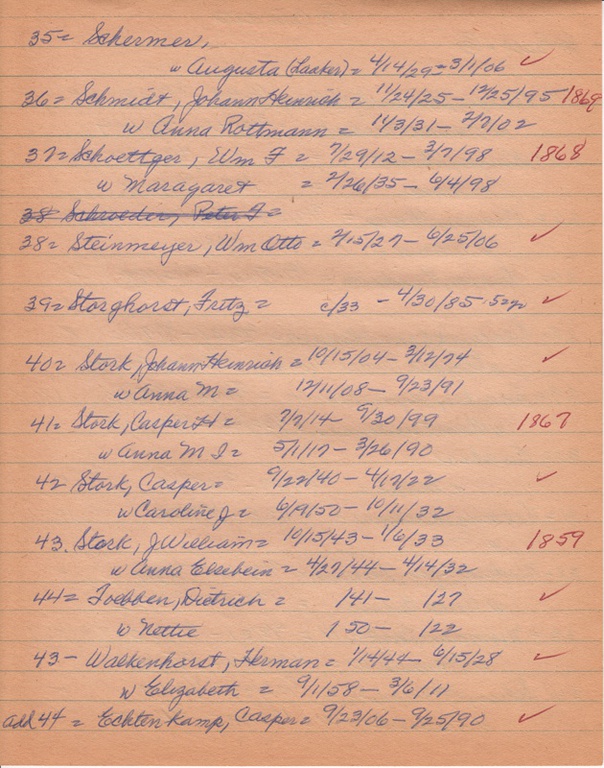 35= Schermer,
w Augusta (Laaker) = 4/14/29 - 3/1/06 ✓
36= Schmidt, Johann Heinrich = 11/24/25 - 12/25/95 1869
w Anna Rottmann = 1/3/31 - 2/7/02
37= Schoettger, Wm F = 7/29/12 - 3/7/98 1868
w Maragaret = 2/26/35 - 6/4/98
38 Schroeder, Peter F=
38= Steinmeyer, Wm Otto = 2/15/27 - 6/25/06 ✓
39= Storghorst, Fritz = c/33 - 4/30/85 - 52y ✓
40= Stork, Johann Heinrich = 10/15/04 - 3/12/74 ✓
w Anna M = 12/11/08 - 9/23/91
41= Stork, Casper H = 7/7/14 - 9/30/99 1867
w Anna M I = 5/1/17 - 3/26/90
42 Stork, Casper = 9/22/40 - 4/17/22 ✓
w Caroline J = 6/19/50 - 10/11/32
43. Stork, J William = 10/15/43 - 1/6/33 1859
w Anna Elsebein = 4/27/44 - 4/14/32
44= Toebben, Dietrich = /41 - /27 ✓
w Nettie /50 - /22
43 - Walkenhorst, Herman = 1/14/44 - 6/15/28 ✓
w Elizabeth = 9/1/58 - 3/6/11
add 44 = Echtenkamp, Casper = 9/23/06 - 9/25/90 ✓